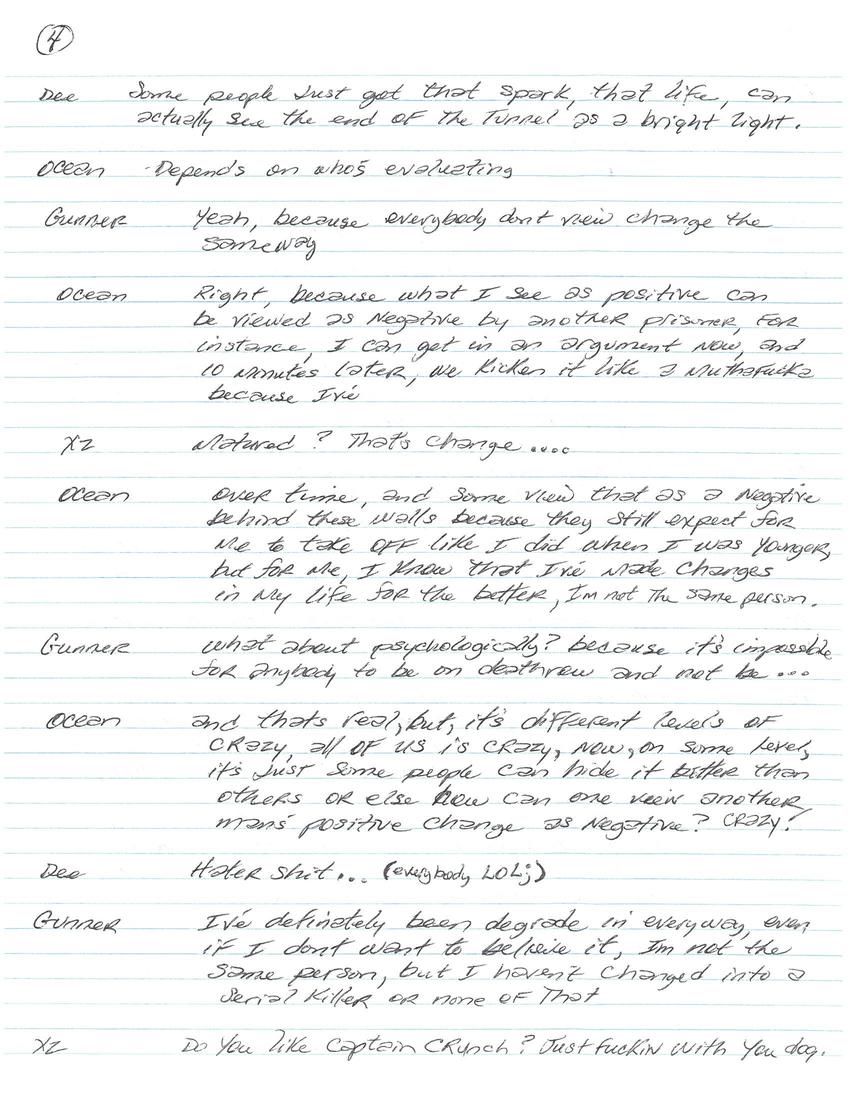 4
Dee Some people Just got that spark, that life, can
actually see the end of the Tunnel as a bright light.
Ocean -Depend's on who's evaluating
Gunner Yeah, because everybody don't view change the
sameway
Ocean Right, because what I see as positive can
be viewed as Negative by another prisoner, For
instance, I can get in an argument Now, and
10 minutes later, we Kicken it like a Muthafucka
because I've
XZ Matured? That's change....
Ocean over time, and some view that as a Negative
behind these walls because they still expect for
Me to take OFF like I did when I was Younger,
but for Me, I Know that I've made changes
in My life for the better, Im not The same person.
Gunner what about psychologically? because it's impossible
for anybody to be on deathrow and not be...
Ocean and thats real, but, it's different levels of
CRazy, all of us is CRazy, Now, on some level,
it's Just some people can hide it bitter than
others or else how can one veiw another
man's positive change as Negative? CRazy!
Dee Hater shit... (everybody LOL;)
Gunner I've definately been degrade in everyway, even
if I dont want to beleive it, Im not the
same person, but I haven't changed into a
Serial Killer or none of That
XZ Do You like Captain CRunch? Just fuckin with You dog.